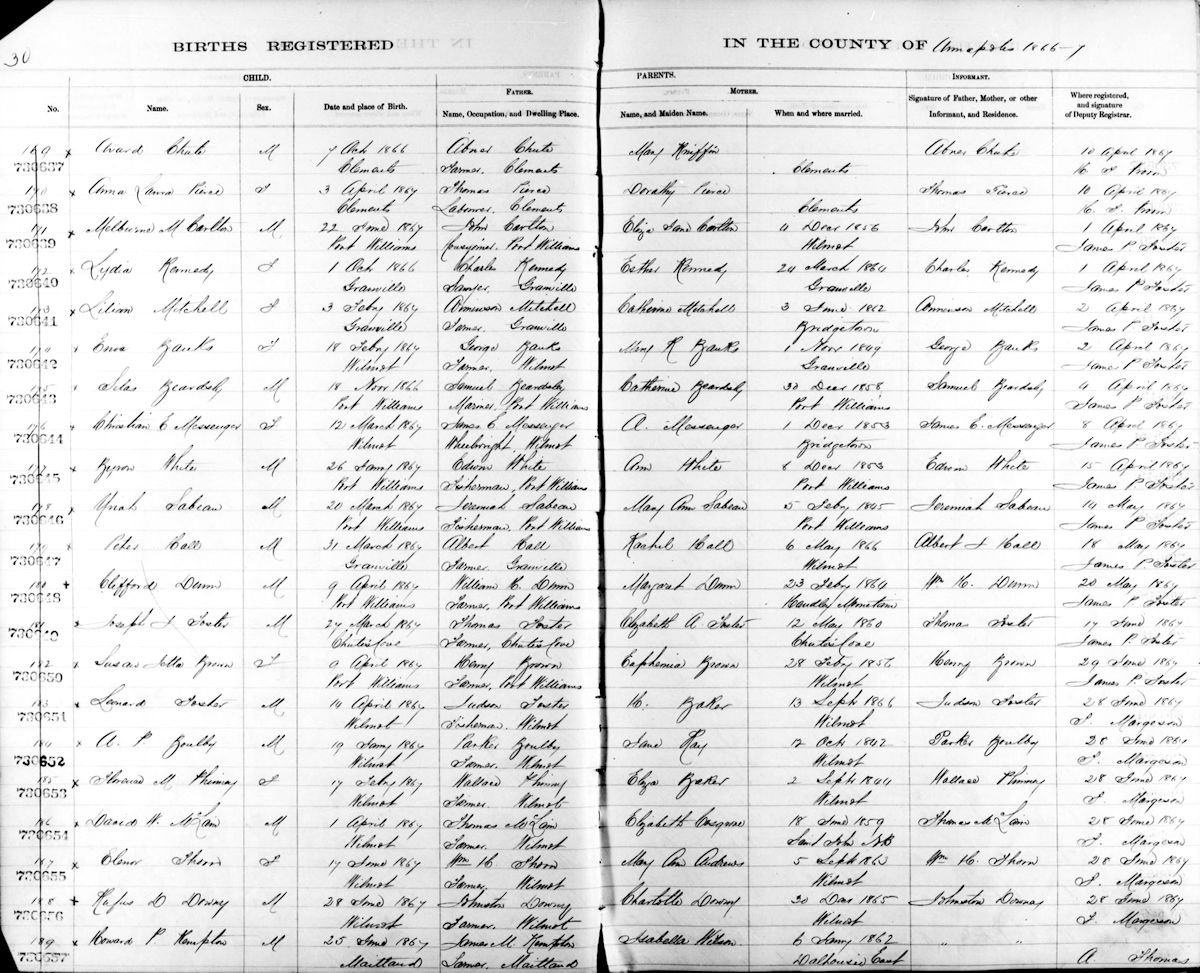 30
BIRTHS REGISTERED
IN THE COUNTY OF Annapolis 1866-7
CHILD.
PARENTS.
INFORMANT.
FATHER.
MOTHER.
No. Name. Sex. Date and place of Birth. Name, Occupation, and Dwelling Place. Name, and Maiden Name. When and where married. Signature of Father, Mother, or other Informant, and Residence. Where registered, and signature of Deputy Registrar.
169 x Avard Chute M 7 Oct 1866 Abner Chute Mary Kniffin Abner Chute 10 April 1867
730637 Clements Farmer. Clements Clements
170 x Anna Laura Pierce F 3 April 1867 Thomas Pierce Dorothy Pierce Thomas Pierce 10 April 1867
730638 Clements Labourer. Clements Clements
171 x Melbourne M Carlton M 22 1867 John Carlton Eliza Jane Carlton 4 Decr 1856 John Carlton 1 April 1867
730639 Port Williams Port Williams Wilmot James P. Foster
172 x Lydia Kennedy F 1 Oct 1866 Charles Kennedy Esther Kennedy 24 March 1864 Charles Kennedy 1 April 1867
730640 Granville Granville Granville James P Foster
173 x Mitchell F 3 Feby 1867 Mitchell Catherine Mitchell 3 Mitchell 2 April 1867
730641 Granville Farmer. Granville Bridgetown James P. Foster
174 x Banks F 18 Feby 1867 George Banks Mary R Banks 1 Novr 1849 George Banks 2 April 1867
730642 Wilmot Farmer. Wilmot Granville James P. Foster
175 x Silas Beardsly M 18 Novr 1866 Samuel Beardsly Catherine Beardsly 30 Decr 1858 Samuel Beardsly 4 April 1867
730643 Port Williams Mariner. Port Williams Port Williams James P. Foster
176 x Christian E Messenger F 12 March 1867 James E Messenger A. Messenger 1 Decr 1853 James E. Messenger 8 April 1867
730644 Wilmot Wheelwright, Wilmot Bridgetown James P. Foster
177 x Byron White M 26 Jany 1867 Edson White Ann White 8 Decr 1853 Edson White 15 April 1867
730645 Port Williams Fisherman, Port Williams Port Williams James P. Foster
178 x Uriah Sabean M 20 March 1867 Jeremiah Sabean Mary Ann Sabean 5 Feby 1845 Jeremiah Sabean 14 May 1867
730646 Port Williams Fisherman, Port Williams Port Williams James P. Foster
179 x Peter Hall M 31 March 1867 Albert Hall Rachel Hall 6 May 1866 Albert J Hall 18 May 1867
730647 Granville Farmer. Granville Wilmot James P. Foster
180 + Clifford Dunn M 9 April 1867 William H. Dunn Margaret Dunn 23 Feby 1864 Wm H. Dunn 20 May 1867
730648 Port Williams Farmer, Port Williams Handley Mountain James P. Foster
181 x Joseph J Foster M 27 March 1867 Thomas Foster Elizabeth A Foster 12 May 1860 Thomas Foster 17 June 1867
730649 Chute's Cove Farmer, Chute's Cove Chute's Cove James P. Foster
182 x Susan Brown F 9 April 1867 Henry Brown Euphemia Brown 28 Feby 1856 Henry Brown 29 June 1867
730650 Port Williams Farmer, Port Williams Wilmot James P. Foster
183 x Leonard Foster M 14 April 1867 Judson Foster H. Baker 13 Sept 1866 Judson Foster 28 June 1867
730651 Wilmot Fisherman. Wilmot Wilmot J. Margeson
184 x A. P. Boulby M 19 Jany 1867 Parker Boulby Jane Ray 12 Oct 1842 Parker Boulby 28 June 1867
730652 Wilmot Farmer. Wilmot Wilmot J. Margeson
185 x Florence M. Phinney F 17 Feby 1867 Wallace Phinney Eliza Baker 2 Sept 1844 Wallace Phinney 28 June 1867
730653 Wilmot Farmer Wilmot Wilmot J. Margeson
186 x David W. McLain M 1 April 1867 Thomas McLain Elizabeth Cosgrove 18 June 1859 Thomas McLain 28 June 1867
730654 Wilmot Farmer. Wilmot Saint John NB J. Margeson
187 x Elenor Thorn F 17 June 1867 Wm H Thorn Mary Ann Andrews 5 Sept Wm H. Thorn 28 June 1867
730655 Wilmot Farmer, Wilmot Wilmot J. Margeson
188 + Rufus D Downy M 28 June 1867 Johnston Downy Charlotte Downy 20 1865 Johnston Downy 28 June 1867
730656 Wilmot Farmer. Wilmot Wilmot J. Margeson
189 x Howard P. Kempton M 25 June 1867 James M. Kempton Isabella Wilson 6 Jany 1862 " "
730657 Maitland Farmer. Maitland Dalhousie East A. Thomas